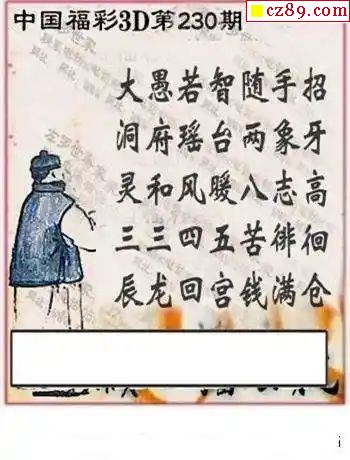 cz89.com
中国福彩3D第230期
大愚若智随手招
洞府瑶台两象牙
灵和风暖八志高
三三四五苦徘徊
辰龙回宫钱满仓
i